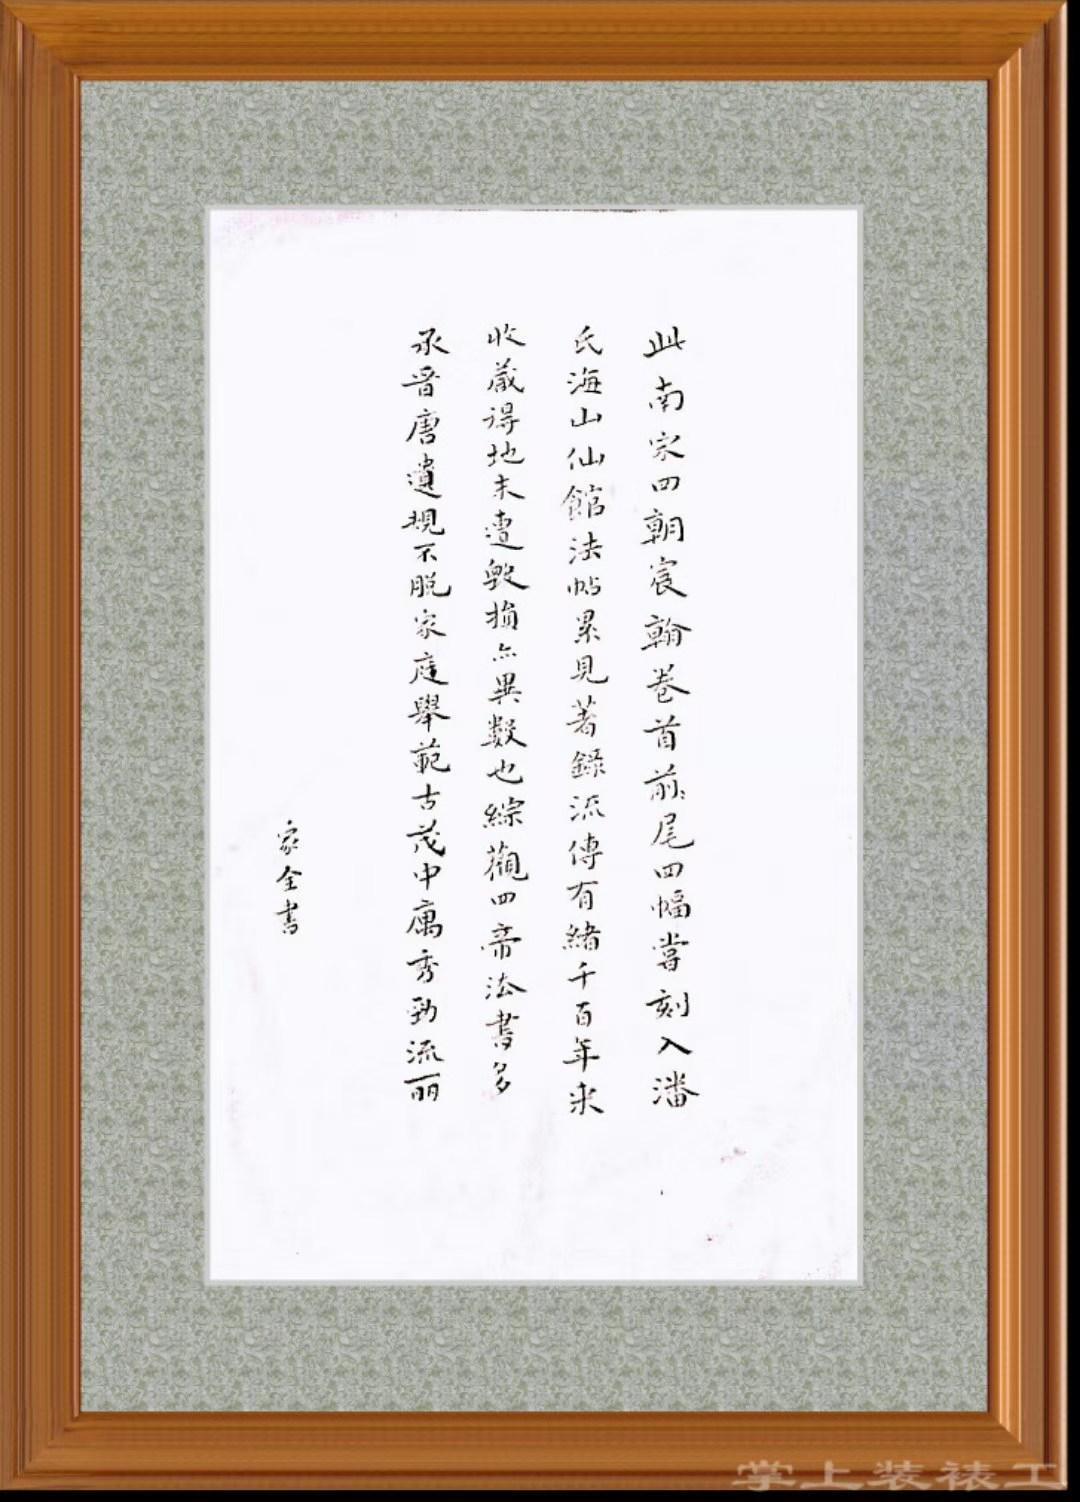 此南宋四朝宸翰卷首前尾四幅嘗刻入潘
氏海山仙館法帖累見著錄流傳有緒千百年来
收蔵得地未遭毀損亦異數也綜觀四帝法書多
承晋唐遺規不脱家庭舉範古茂中寓秀勁流丽
家全書
掌上装裱工